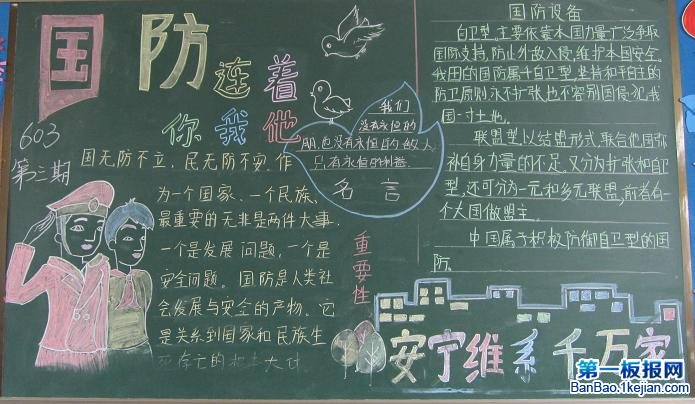 国防连着
你我他
603
第三期
国无防不立，民无防不安。作
为一个国家、一个民族、
最重要的无非是两件大事.
一个是发展问题，一个是
安全问题。国防是人类社
会发展与安全的产物。它
是关系到国家和民族生
死存亡的
大计
重要性
我们
没有永恒的
朋，也没有永恒的敌人
只有永恒的利益
名言
国防设备
自卫型，主要依靠本国力量广泛争取
国际支持，防止外敌入侵，维护本国安全。
我国的国防属于自卫型，坚持和平自主的
防卫原则永不扩张也不容别国侵犯我
国一寸土地。
联盟型以结盟形式，联合他国弥
补自身力量的不足。又分为扩张和自卫
型，还可分为一元和多元联盟，前者有一
个大国做盟主。
中国属于积极防御自卫型的国
防。
安宁维系千万家
第一板报网
BanBao.1kejian.com